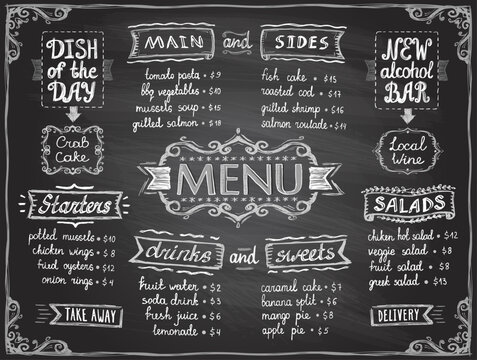 DISH
of the
DAY
Crab
Cake
MAIN and SIDES
tomato pasta • $9
bbq vegetables • $10
mussels soup • $15
grilled salmon • $18
fish cake • $15
roasted cod • $17
grilled shrimp • $16
salmon roulade • $14
NEW
alcohol
BAR
Local
Wine
MENU
Starters
potted mussels • $10
chicken wings • $8
fried oysters • $12
onion rings • $4
TAKE AWAY
drinks and sweets
fruit water • $2
soda drink • $3
fresh juice • $6
lemonade • $4
caramel cake • $7
banana split • $6
mango pie • $8
apple pie • $5
SALADS
chiken hot salad • $12
veggie salad • $8
fruit salad • $8
greek salad • $13
DELIVERY